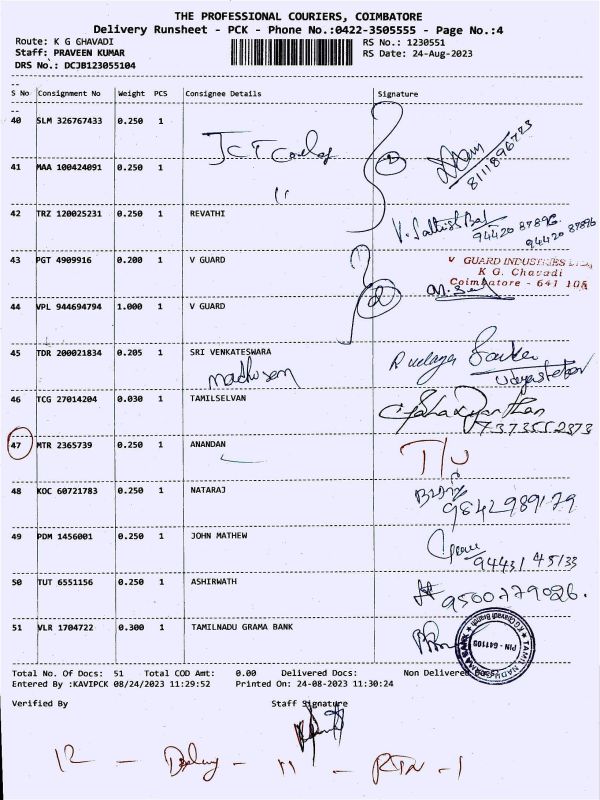 THE PROFESSIONAL COURIERS, COIMBATORE
Delivery Runsheet - PCK - Phone No.:0422-3505555 - Page No.:4
Route: K G CHAVADI
RS No.: 1230551
Staff: PRAVEEN KUMAR
RS Date: 24-Aug-2023
DRS No.: DCJB123055104
S No Consignment No Weight PCS Consignee Details Signature
40 SLM 326767433 0.250 1
JCT College
8111896723
41 MAA 100424091 0.250 1
11
42 TRZ 120025231 0.250 1 REVATHI
94420 87896
94420 87896
43 PGT 4909916 0.200 1 V GUARD
V GUARD INDUSTRIES
K G. Chavadi
Coimbatore - 641 105
44 VPL 944694794 1.000 1 V GUARD
2
45 TDR 200021834 0.205 1 SRI VENKATESWARA
46 TCG 27014204 0.030 1 TAMILSELVAN
7373552373
47 MTR 2365739 0.250 1 ANANDAN
48 KOC 60721783 0.250 1 NATARAJ
9842989179
49 PDM 1456001 0.250 1 JOHN MATHEW
94431 45133
50 TUT 6551156 0.250 1 ASHIRWATH
9500779026.
51 VLR 1704722 0.300 1 TAMILNADU GRAMA BANK
PIN - 641105
Total No. Of Docs: 51 Total COD Amt: 0.00 Delivered Docs: Non Delivered
Entered By :KAVIPCK 08/24/2023 11:29:52 Printed On: 24-08-2023 11:30:24
Verified By Staff Signature
12 - - 11 - RTN - 1